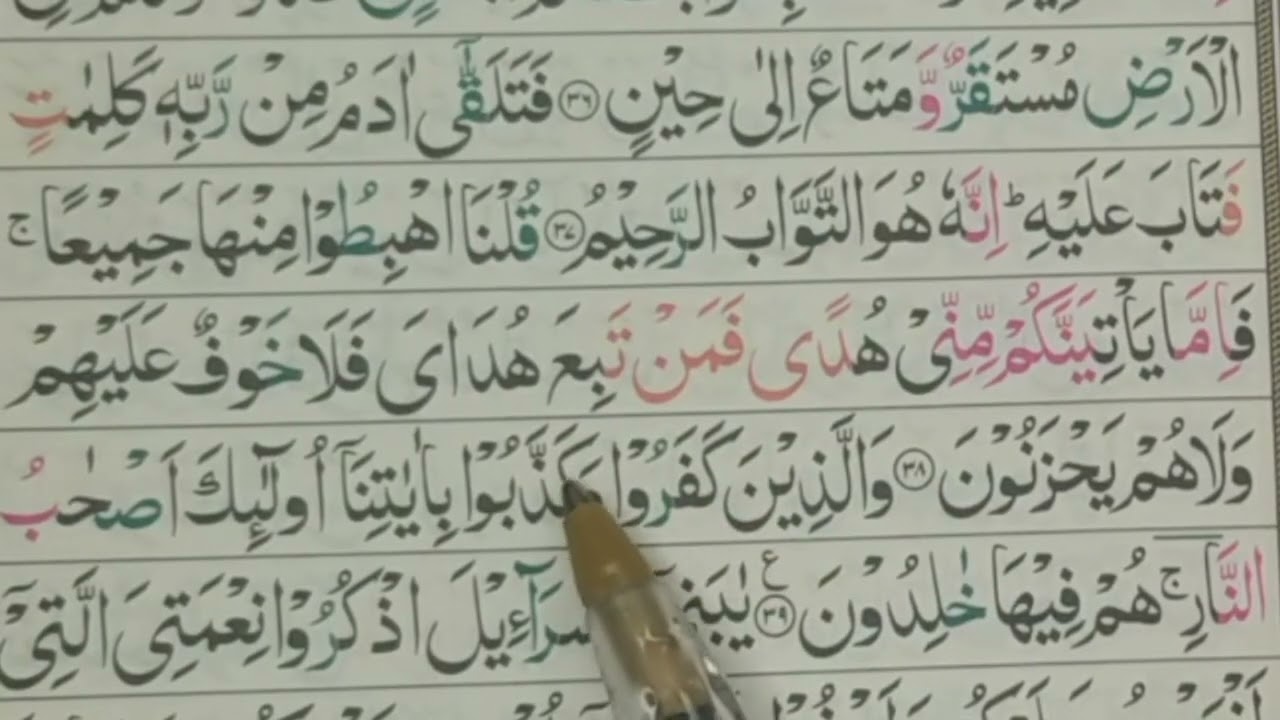 الْاَرْضِ مُسْتَقَرٌّ وَّمَتَاعٌ اِلٰى حِيْنٍ ۝۳۶ فَتَلَقّٰۤى اٰدَمُ مِنْ رَّبِّهٖ كَلِمٰتٍ
فَتَابَ عَلَيْهِ ؕ اِنَّهٗ هُوَ التَّوَّابُ الرَّحِيْمُ ۝۳۷ قُلْنَا اهْبِطُوْا مِنْهَا جَمِيْعًا ۚ
فَاِمَّا يَاْتِيَنَّكُمْ مِّنِّىْ هُدًى فَمَنْ تَبِعَ هُدَاىَ فَلَا خَوْفٌ عَلَيْهِمْ
وَلَا هُمْ يَحْزَنُوْنَ ۝۳۸ وَالَّذِيْنَ كَفَرُوْا وَكَذَّبُوْا بِاٰيٰتِنَاۤ اُولٰٓئِكَ اَصْحٰبُ
النَّارِ ۚ هُمْ فِيْهَا خٰلِدُوْنَ ۝۳۹ ع اذْكُرُوْا نِعْمَتِىَ الَّتِىْۤ